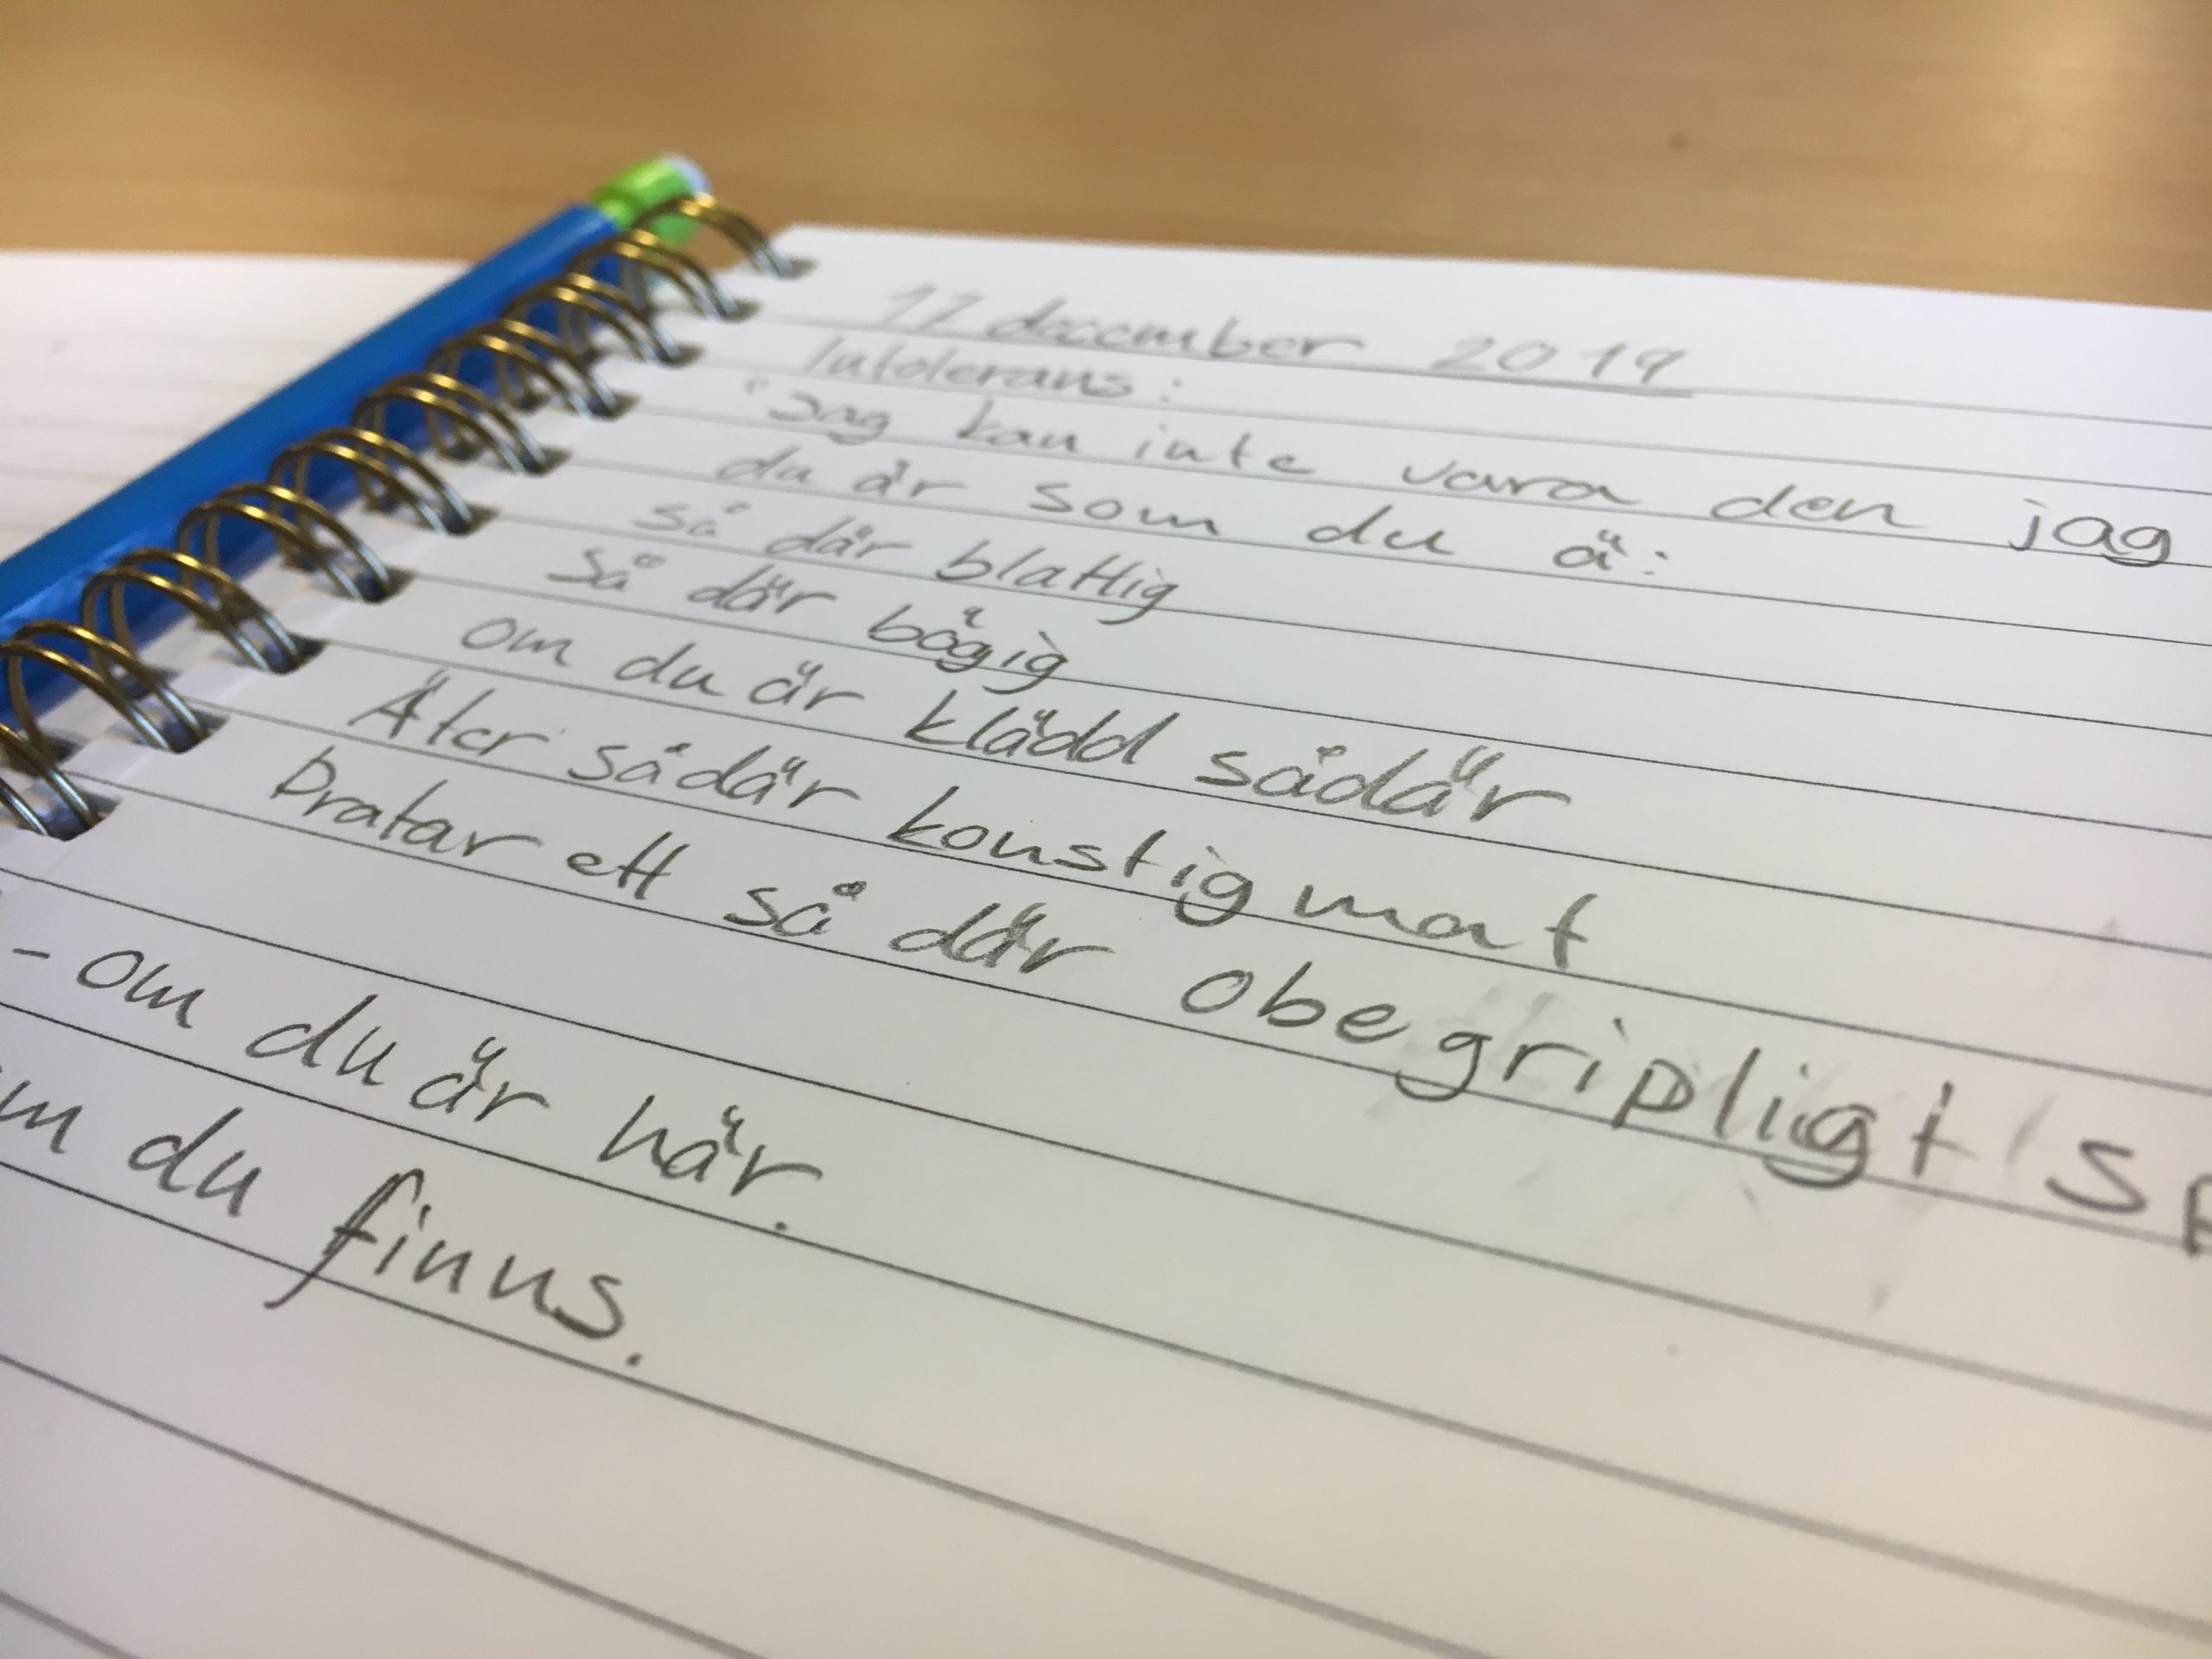 11 december 2019
Intolerans:
"Jag kan inte vara den jag
du är som du ä:
så där blattig
så där bögig
om du är klädd sådär
Äter sådär konstig mat
Pratar ett så där obegripligt sp
- om du är här.
m du finns.